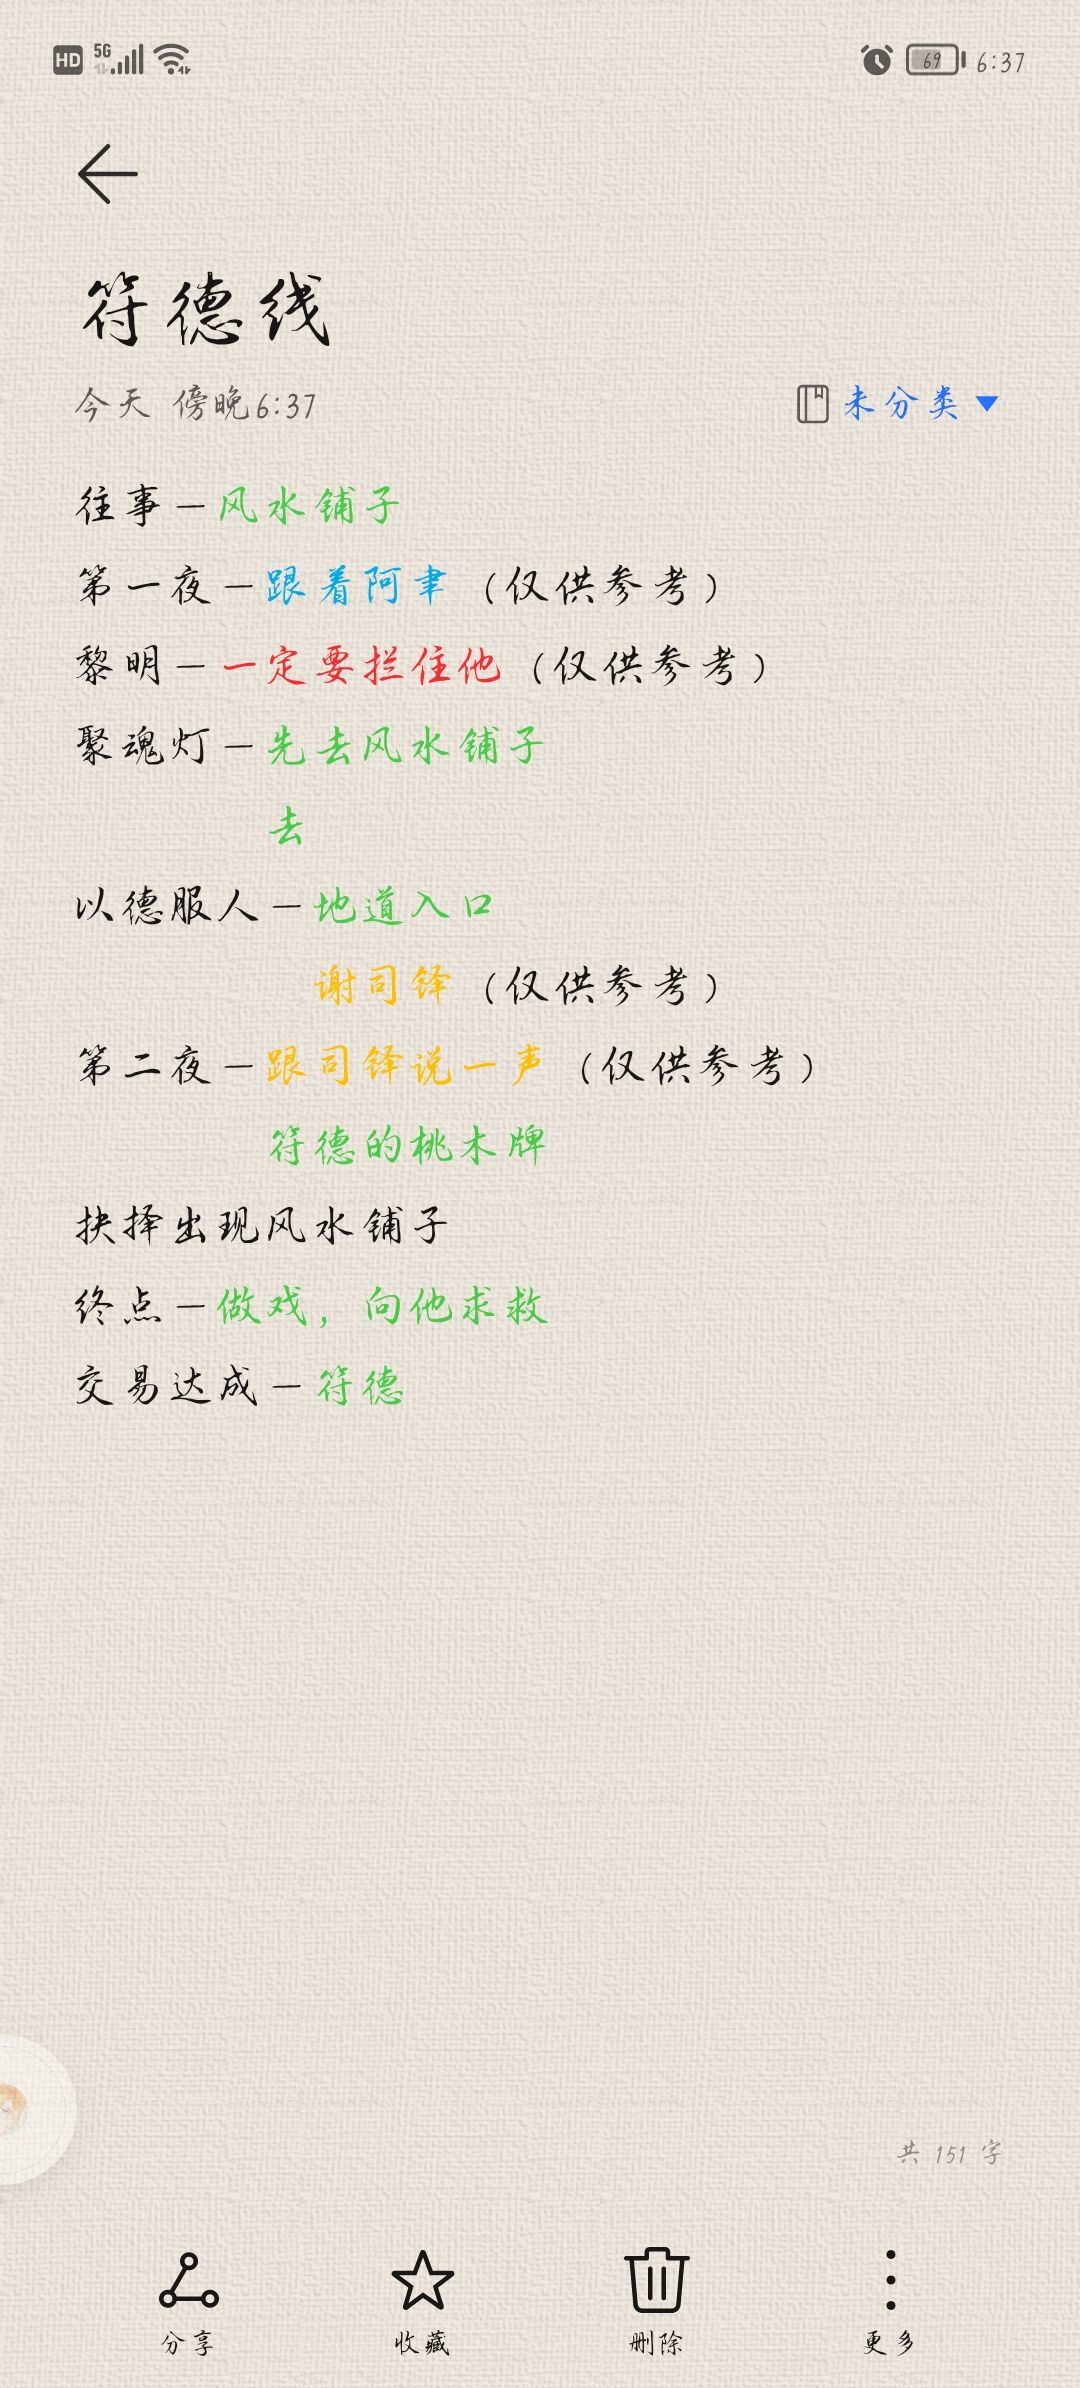 HD 5G 69 6:37
符德线
今天 傍晚6:37 未分类
往事—风水铺子
第一夜—跟着阿聿（仅供参考）
黎明—一定要拦住他（仅供参考）
聚魂灯—先去风水铺子
去
以德服人—地道入口
谢司铎（仅供参考）
第二夜—跟司铎说一声（仅供参考）
符德的桃木牌
抉择出现风水铺子
终点—做戏，向他求救
交易达成—符德
共 151 字
分享 收藏 删除 更多